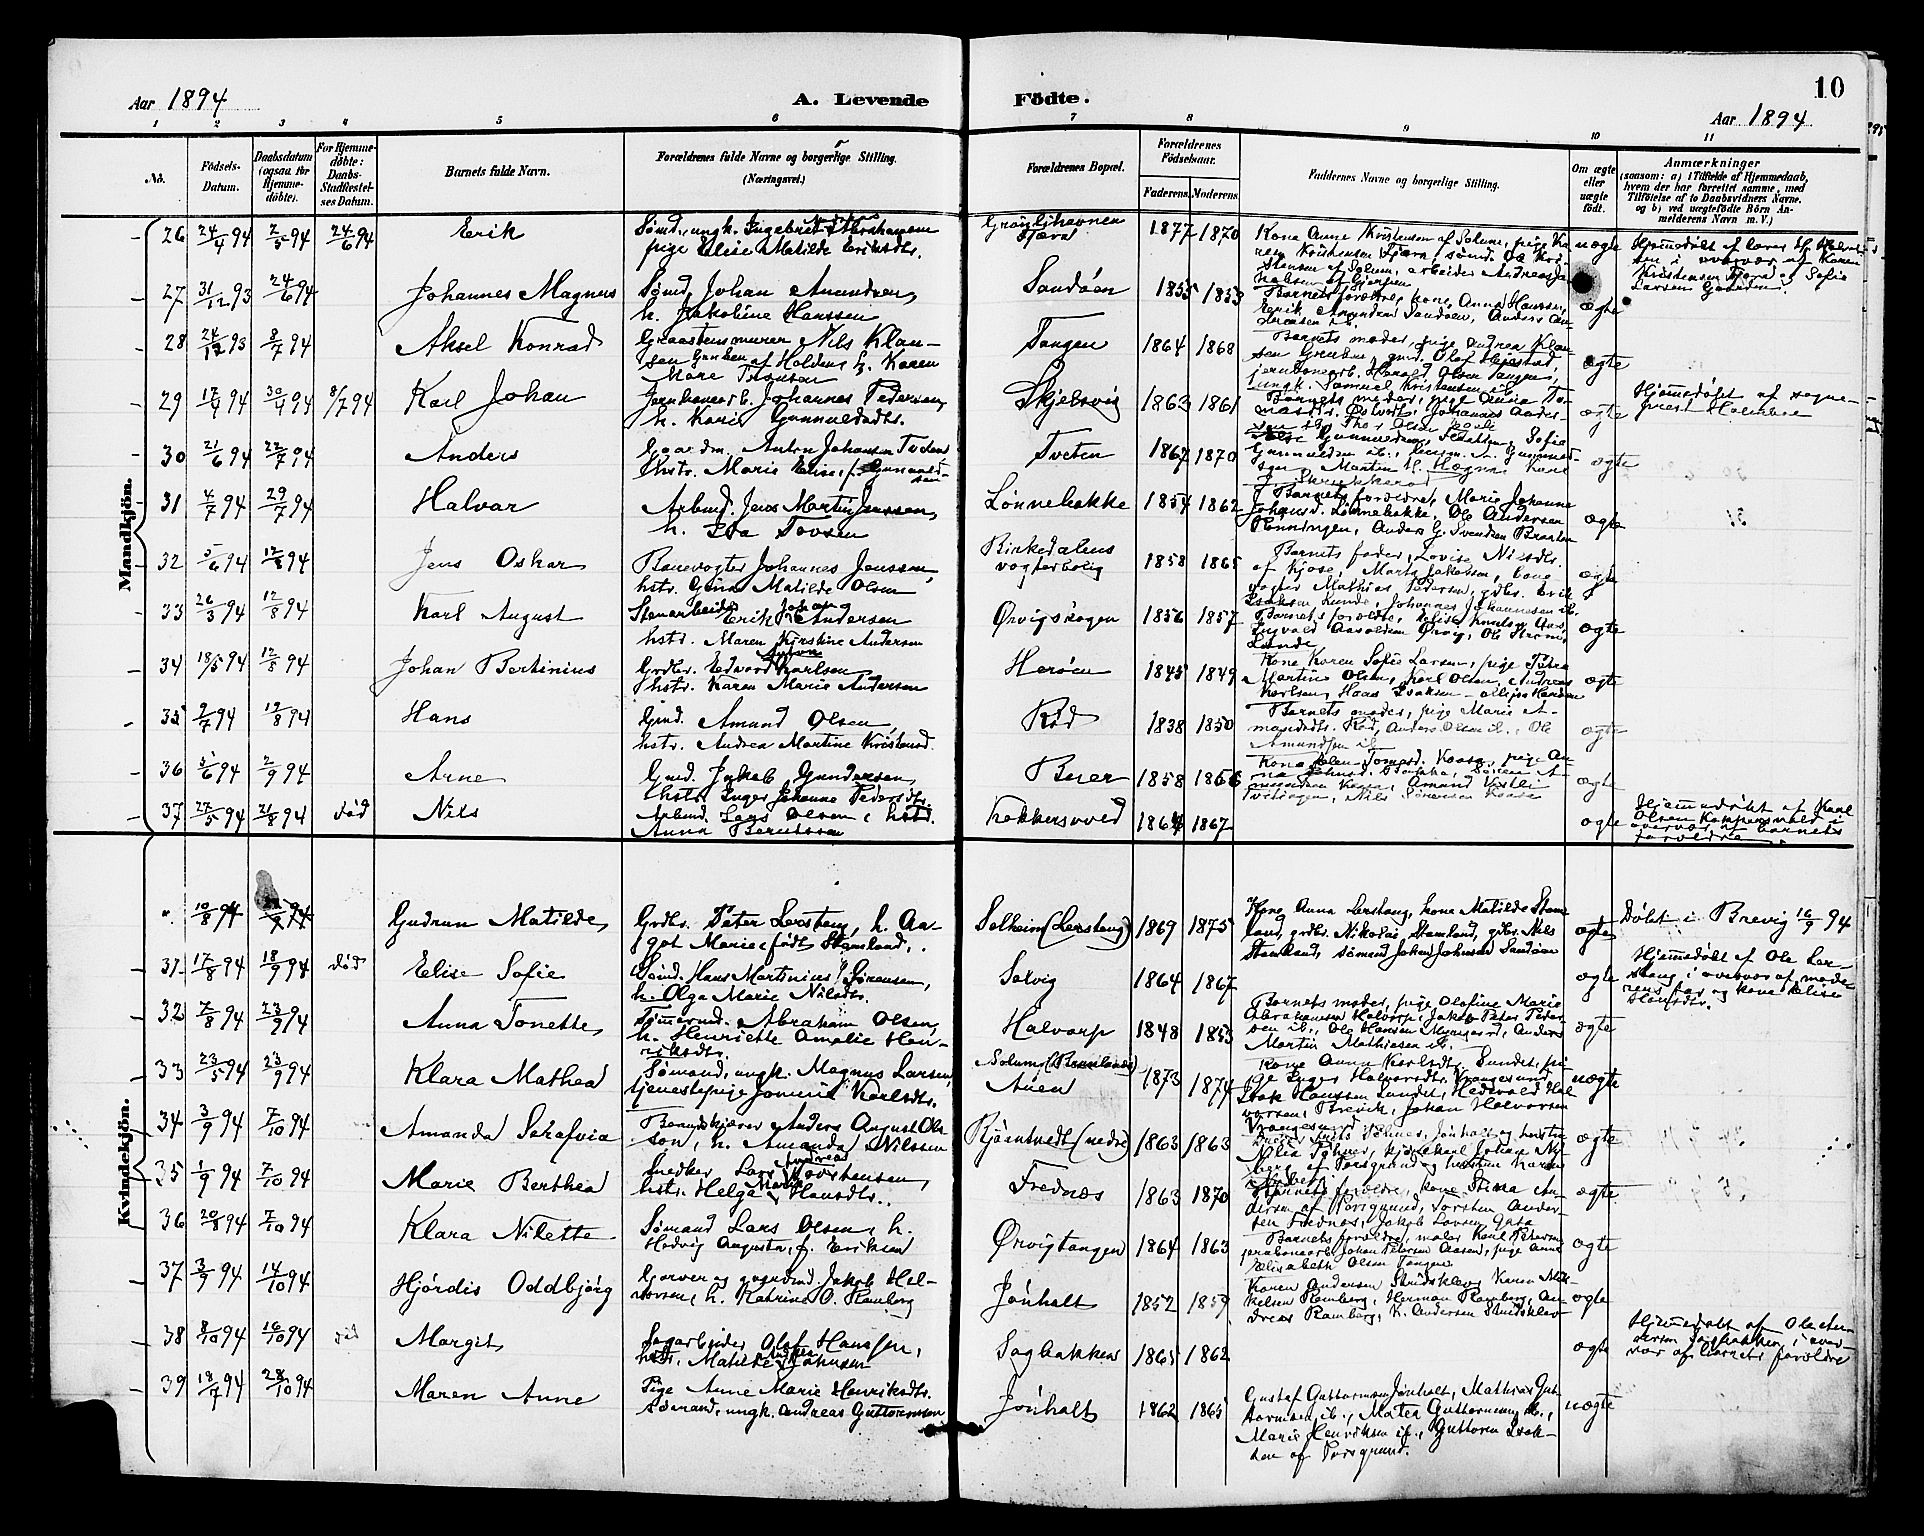 10
Aar 1894
A. Levende Födte.
Aar 1894
1 2 3 4 5 6 7 8 9 10 11
No.
Födsels-
Datum.
Daabsdatum
(ogsaa for
Hjemme-
döbte).
For Hjemme-
döbte:
Daabs-
Stadfæstel-
ses Datum.
Barnets fulde Navn.
Forældrenes fulde Navne og borgerlige Stilling.
(Næringsvei.)
Forældrenes Bopæl.
Forældrenes
Födselsaar.
Faderens. Moderens.
Faddernes Navne og borgerlige Stilling.
Om ægte
eller
uægte
födt.
Anmærkninger
(saasom: a) i Tilfælde af Hjemmedaab,
hvem der har forrettet samme, med
Tilföielse af to Daabsvidners Navne.
og b) ved uægtefödte Börn An-
melderens Navn m. V.)
Mandkjön.
26 24/4 94 2/5 94 24/6 94 Erik
Sømd., ungk. Ingebret Andreas Abrahamsen
pige Elise Matilde Eriksdtr.
Grønlihavnen
Fjære
1877 1870
Kone Anne Kristensen af Solum, pige Ka-
ren Kristensen Fjære, sømd. Ole Kri-
stensen af Solum, arbeider Andreas Ja-
kobsen af Gjerpen
uægte
Hjemmedøbt af lærer H. Halvor-
sen i overvær af Karen
Kristensen Fjære og Sofie
Larsen Gaarden.
27 31/12 93 24/6 94 Johannes Magnus
Sømd. Johan Amundsen,
h. Jakobine Hanssen
Sandøen
1855 1853
Barnets forældre, kone Anna Hanssen,
Erik Amundsen Sandøen, Anders An-
dersen ib.
ægte
28 24/12 93 8/7 94 Aksel Konrad
Graastensmurer Nils Klau-
sen Gruben af Holden, h. Karen
Mare
Tangen
1864 1868
Barnets moder, pige Andrea Klau-
sen Gruben, gmd. Olaf Hejestad,
jernbanearb. Harald Olsen Tangen,
ungk. Samuel Kristensen ib.
ægte
29 17/4 94 30/4 94 8/7 94 Karl Johan
Jernbanearb. Johannes Pedersen,
h. Karen Gunnuldsdtr.
Skjelsvig
1863 1861
Barnets moder, pige Anna To-
masdtr. Østvedt, Johannes Anders-
sen ib., Thor Olsen
ægte
Hjemmedøbt af sogne-
prest Holmboe
30 21/6 94 22/7 94 Anders
Gaardm. Anton Johansen Tveten
Hstr. Marie Elise, f. Gunnuld-
sen
Tveten
1867 1870
Gunnuldsen, Sofie
Gunnuldsen ib., Gunnuld-
sen, Martin H. Høgeni, Karl
ægte
31 4/7 94 29/7 94 Halvar
Arbmd. Jens Martin Jenssen,
h. Eva Tovsen
Lønnebakke
1854 1862
Barnets forældre, Marie Johanne
Johansd. Lønnebakke, Ole Andersen
Rønningen, Anders G. Svendsen Braaten
ægte
32 5/6 94 12/8 94 Jens Oskar
Banevogter Johannes Jenssen,
hstr. Gina Matilde Olsen
Birkedalens
vogterbolig
1858 1865
Barnets fader, Lovise Nilsdtr.
af Kjose, Marte Jakobsen, bane-
vogter Mathias Pedersen, gdbr. Erik
Isaksen Lunde, Johannes Johannesen ib.
ægte
33 26/3 94 12/8 94 Karl August
Stenarbeider Erik Johan Andersen
hstr. Maren Kirstine Andersen
Ørvigskogen
1856 1857
Barnets forældre, Elise Knudsen Aas,
Ingvald Aaroldsen Ørvig, Ole Strøm,
Lunde
ægte
34 18/5 94 12/8 94 Johan Bertinius
Grdbr. Edvard Anton Karlsen,
hstr. Karen Marie Andersen
Herøen
1845 1849
Kone Karen Sofie Larsen, pige Petra
Martine Olsen, Karl Olsen, Andreas
Karlsen, Hans Isaksen – alle fra Herøen
ægte
35 9/7 94 19/8 94 Hans
Gmd. Amund Olsen,
hstr. Andrea Martine Kristensd.
Rød
1838 1850
Barnets moder, pige Marie A-
mundsdtr. Rød, Anders Olsen ib., Ole
Amundsen ib.
ægte
36 3/6 94 2/9 94 Arne
Gmd. Jakob Gundersen,
Hstr. Inger Johanne Pedersdtr.
Buer
1858 1866
Kone Elen Tomasd. Kaasa, pige An-
na Johnsd. Søren A-
mundsen Kaasa, Amund
Nils Sørensen Kaasa
ægte
37 27/5 94 21/8 94 død Nils
Arbmd. Lars Olsen, hstr.
Anna Berntsen
Kokkersvold
1864 1867
ægte
Hjemmedøbt af Karl
Olsen Kokkersvold i
overvær af barnets
forældre.
Kvindekjön.
". 10/8 94 /9 94 Gudrun Matilde
Grdbr. Peter Lerstang, h. Aa-
got Marie (født Stamland).
Solheim (Lerstang)
1869 1875
Kone Anna Lerstang, kone Matilde Stam-
land, grdbr. Nikolai Stamland, gdbr. Nils
Stamland, sømand Johan Johnsen Sandøen
ægte
Døbt i Brevig 16/9 94
31 17/8 94 18/9 94 død Elise Sofie
Sømd. Hans Martinius Sørensen,
h. Olga Marie Nilsdtr.
Salvig
1864 1867
ægte
Hjemmedøbt af Ole Ler-
stang i overvær af mode-
rens far og kone Elise
Hansdtr.
32 7/8 94 23/9 94 Anna Tonette
Tømmermd. Abraham Olsen,
h. Henriette Amalie Hen-
riksdtr.
Halvarp
1848 1855
Barnets moder, pige Olafine Marie
Abrahamsen Halvarp, Jakob Peter Peder-
sen ib., Ole Hansen Myrgaard, Anders
Martin Mathiesen ib.
ægte
33 23/5 94 23/9 94 Klara Mathea
Sømand, ungk. Magnus Larsen,
tjenestepige Jonine Karlsdtr.
Solum (Bramlands)
Auen
1873 1874
Kone Anna Karlsdtr. Sundet, pi-
ge Inger Halvorsdtr. Vrangesund,
Isak Hanssen Sundet, Hedevald Hal-
vorsen, Brevik, Johan Halvorsen
Vrangesund
uægte
34 3/9 94 7/10 94 Amanda Serafvia
Brændskjører Anders August Ols-
son, h. Amanda Nilssen
Bjørntvedt (nedre)
1863 1863
ægte
35 1/9 94 7/10 94 Marie Berthea
Snedker Lars Andreas Torstensen,
hstr. Helga Marie Hansdtr.
Frednæs
1863 1870
Barnets forældre, kone Stina An-
dersen af Porsgrund, Torsten Ander-
sen Frednæs, Jakob Larsen
ægte
36 20/8 94 7/10 94 Klara Nilette
Sømand Lars Olsen, h.
Hedvig Augusta, f. Eriksen
Ørvigtangen
1864 1863
Barnets forældre, maler Karl Petersen,
jernbanearb. Johan Petersen Aasen, pige Anna
Elisabeth Olsen Tangen
ægte
37 3/9 94 14/10 94 Hjørdis Oddbjørg
Garver og gaardmd. Jakob Hal-
vorsen, h. Katrine O. Ramberg
Jønholt
1852 1859
Karen Andersen Stridsklev, Karen Mik-
kelsen Ramberg, Herman Ramberg, An-
dreas Ramberg, K. Andersen Stridsklev
ægte
38 8/10 94 16/10 94 død Margit
Sagarbeider Olaf Hanssen,
hstr. Matilde Andrea Johnsen
Sagbakken
1865 1862
ægte
Hjemmedøbt af Ole An-
dersen Sagbakken, i over-
vær af barnets forældre
39 18/7 94 28/10 94 Maren Anne
Pige Anne Marie Henriksdtr.
sømand, ungk. Andreas Guttormsen
Jønholt
1862 1865
Gustaf Guttormsen Jønholt, Mathias Gut-
tormsen ib., Matea Guttormsen ib.,
Marie Henriksen ib., Guttorm Isak-
sen af Porsgrund.
uægte